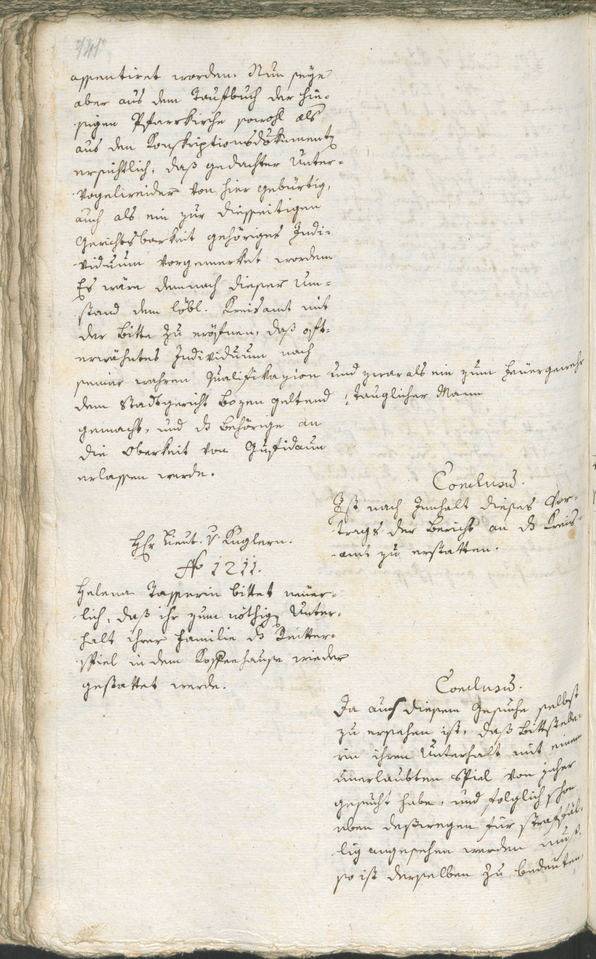 assentiret worden. Nun seye
aber aus dem Taufbuch der hie-
sigen Pfarrkirche sowohl als
aus den Konskriptionsdokumenten
ersichtlich, daß gedachter Unter-
vogelrieder von hier gebürtig,
auch als ein zur diesseitigen
Gerichtsbarkeit gehöriges Indi-
viduum vorgemerket worden
Es wäre demnach dieser Um-
stand dem löbl. Kreisamt mit
der Bitte zu eröfnen, daß oft-
erwähntes Individuum nach
seiner wahren Qualifikazion und zwar als ein zum Feuergewehr
dem Stadtgericht Bozen geltend tauglicher Mann
gemacht, und ds behörige an
die Obrigkeit von Gufidaun
erlassen werde.
Conclusum.
Ist nach Innhalt dieses Vor-
trags der Bericht an ds Kreis-
amt zu erstatten.
Hr Lieut. v. Kuglern.
No 1211.
Helena Tasserin bittet neuer-
lich, daß ihr zum nöthig Unter-
halt ihrer Familie ds
spiel in dem Kossenhause wieder
gestattet werde.
Conclusum.
Da aus diesem Gesuche selbst
zu ersehen ist, daß Bittstelle-
rin ihren Unterhalt mit einem
unerlaubten Spiel von jeher
gesucht habe, und folglich schon
eben deßwegen für straffäl-
lig angesehen werden muß,
so ist derselben zu bedeuten